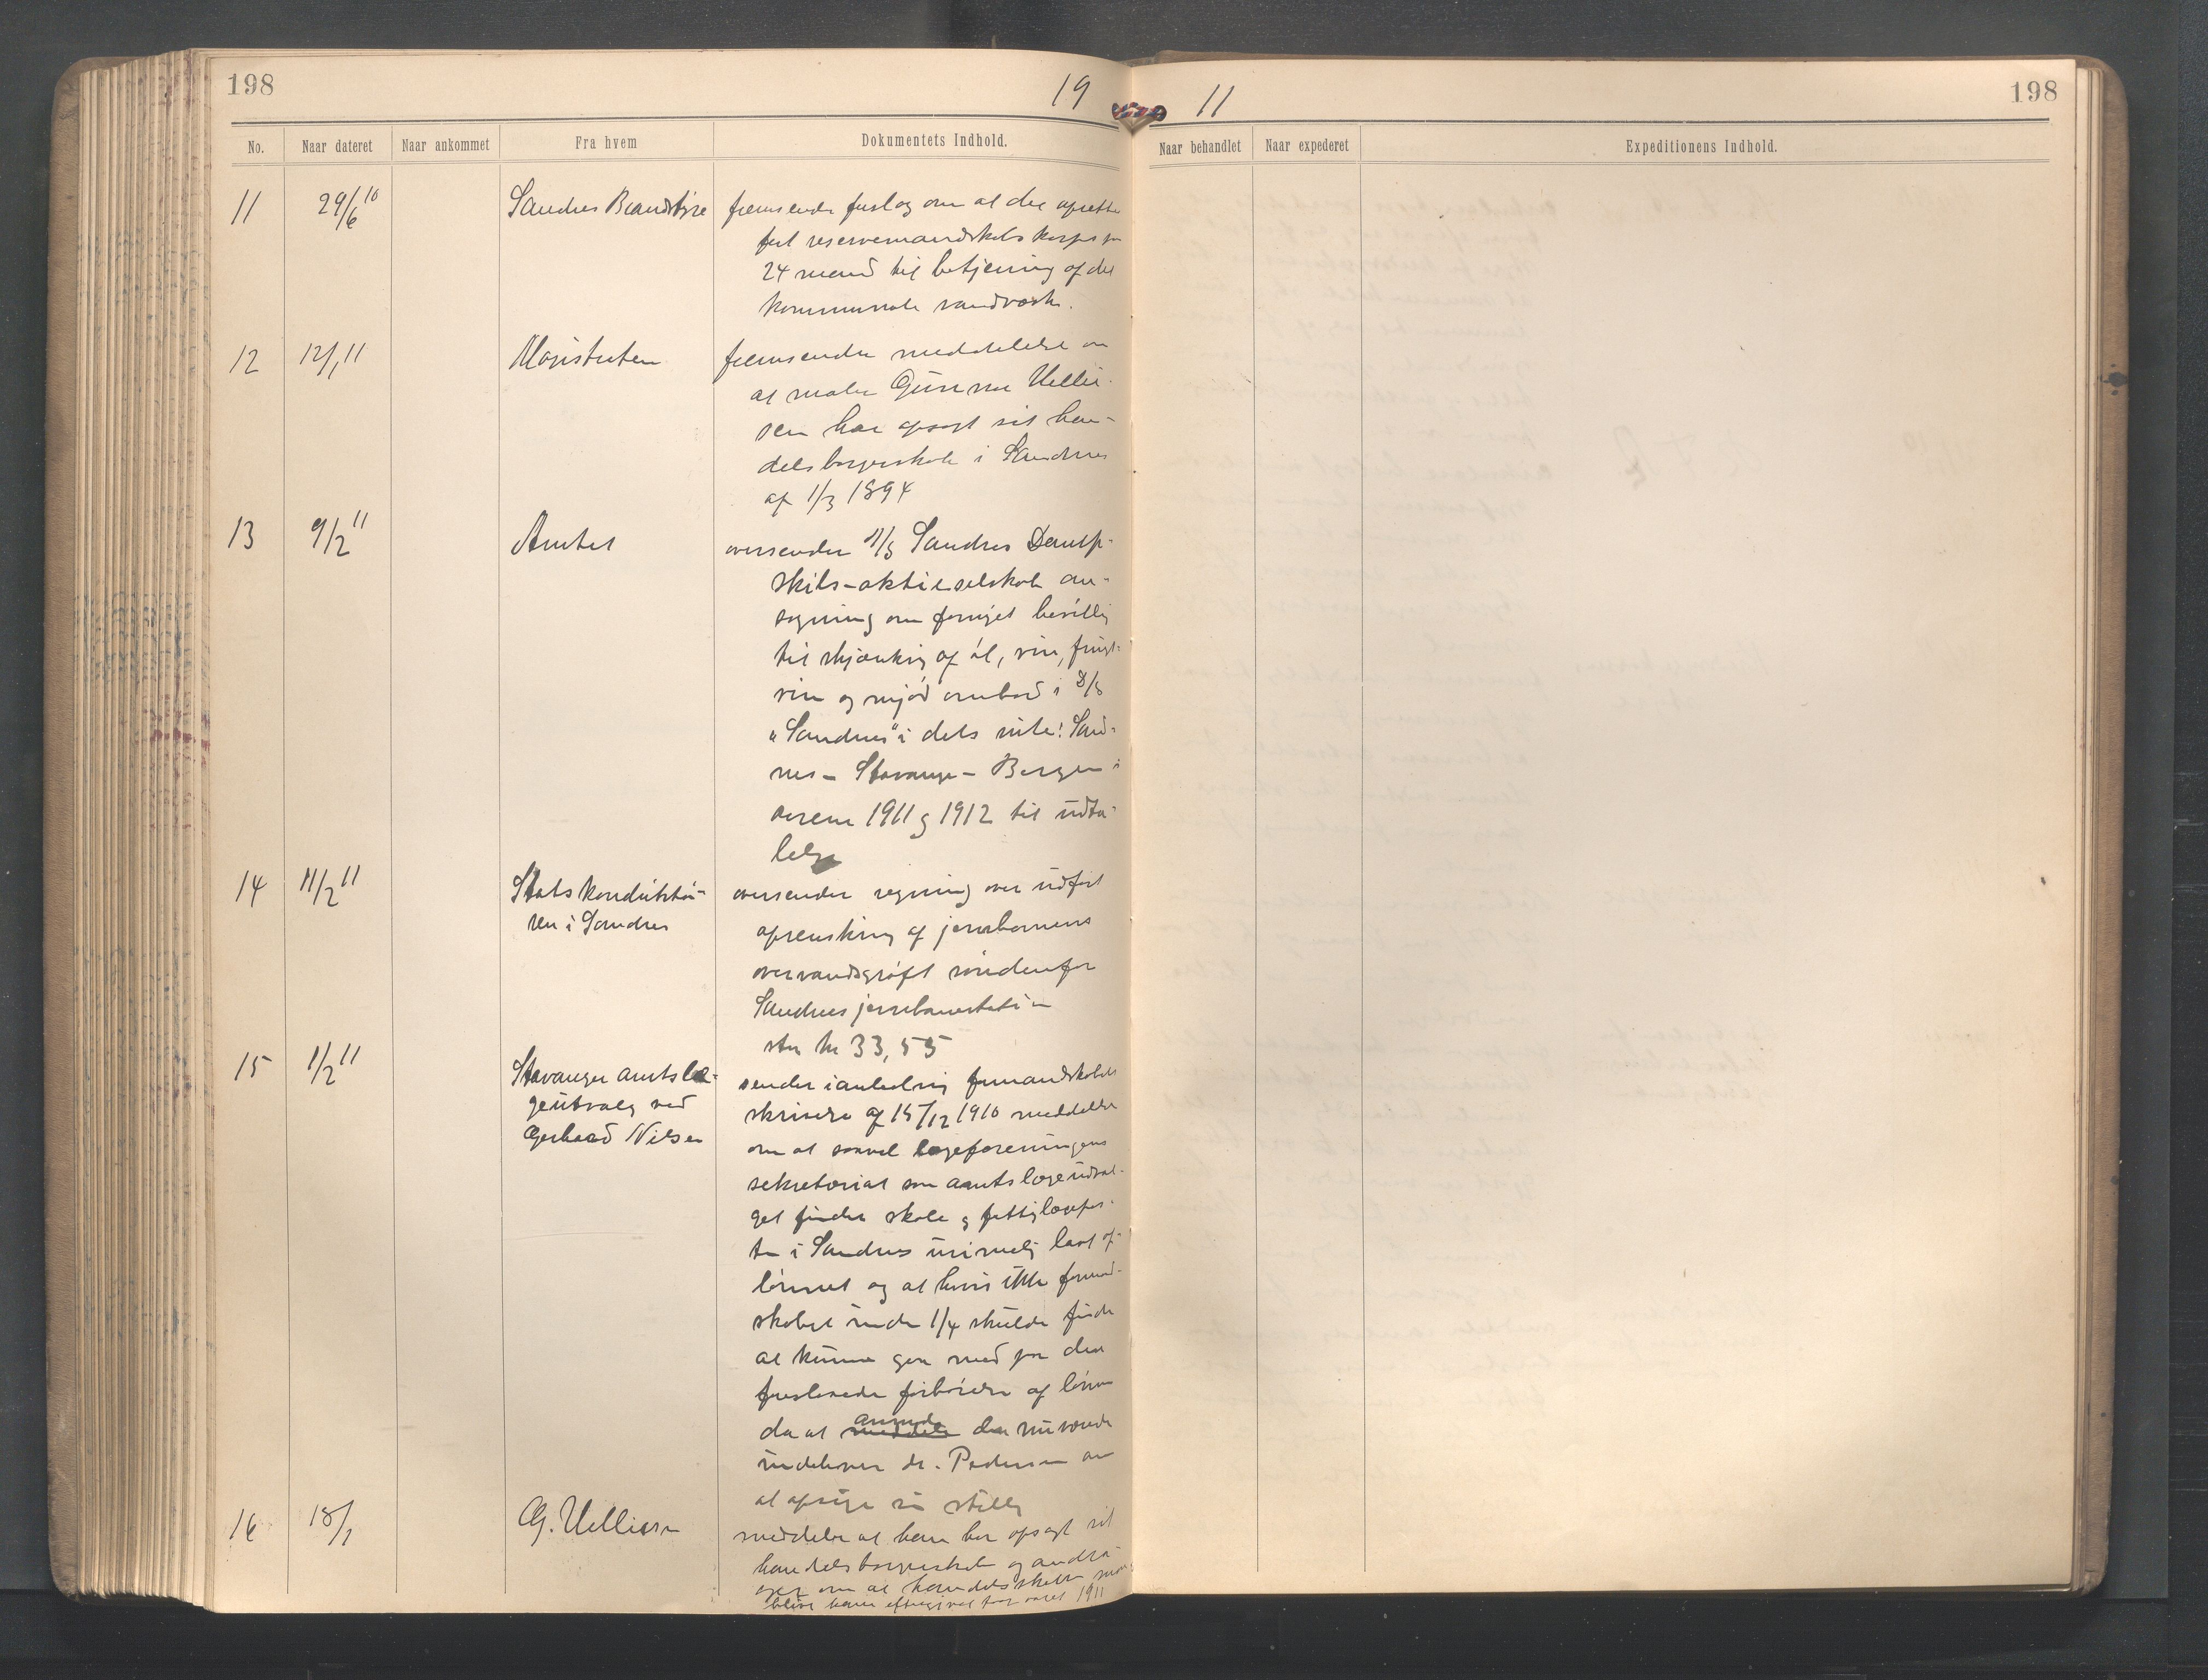 198
19
11
198
No.
Naar dateret
Naar ankommet
Fra hvem
Dokumentets Indhold.
Naar behandlet
Naar expederet
Expeditionens Indhold.
11
29/6 10
Sandnes Brandstyre
fremsender forslag om at der oprette
24 mand til betjening af det
kommunale vandværk.
12
12/1 11
Magistraten
fremsender meddelelse om
at maler Gunnar
sen har opsagt sit han-
delsborgerskab i Sandnes
af 1/3 1894
13
9/2 11
Amtet
oversender Sandnes Damp-
skibs-aktieselskab an-
søgning om fornyet bevillig
til skjænking af øl, vin, frugt-
vin og mjød ombord i D/S
"Sandnes" i dets rute: Sand-
nes - Stavanger - Bergen i
aarene 1911 g 1912 til udta-
lelse
14
11/2 11
Statskonduktø-
ren i Sandnes
oversender regning over udført
oprensking af jernbanens
overvandsgrøft søndenfor
Sandnes jernbanestation
stor kr 33,55
15
1/2 11
Stavanger amtslæ-
geutvalg ved
Gerhard Nilsen
sender i anledning formandskabets
skrivelse af 15/12 1910 meddelelse
om at saavel lægeforeningens
sekretariat som amtslægeudval-
get finder skole g fattiglægepos-
ten i Sandnes urimelig lavt af-
lønnet og at hvis ikke formand-
skabet inden 1/4 skulde finde
at kunne gaa med paa den
foreslaaede forhøielse af lønnen
da at anmode den nuværende
indehaver dr. Pedersen om
at opsige sin stilling
16
18/1
G.
meddeler at han har opsagt sit
handelsborgerskab og andra-
ger om at handelsskatten maa
blive ham eftergivet for aaret 1911